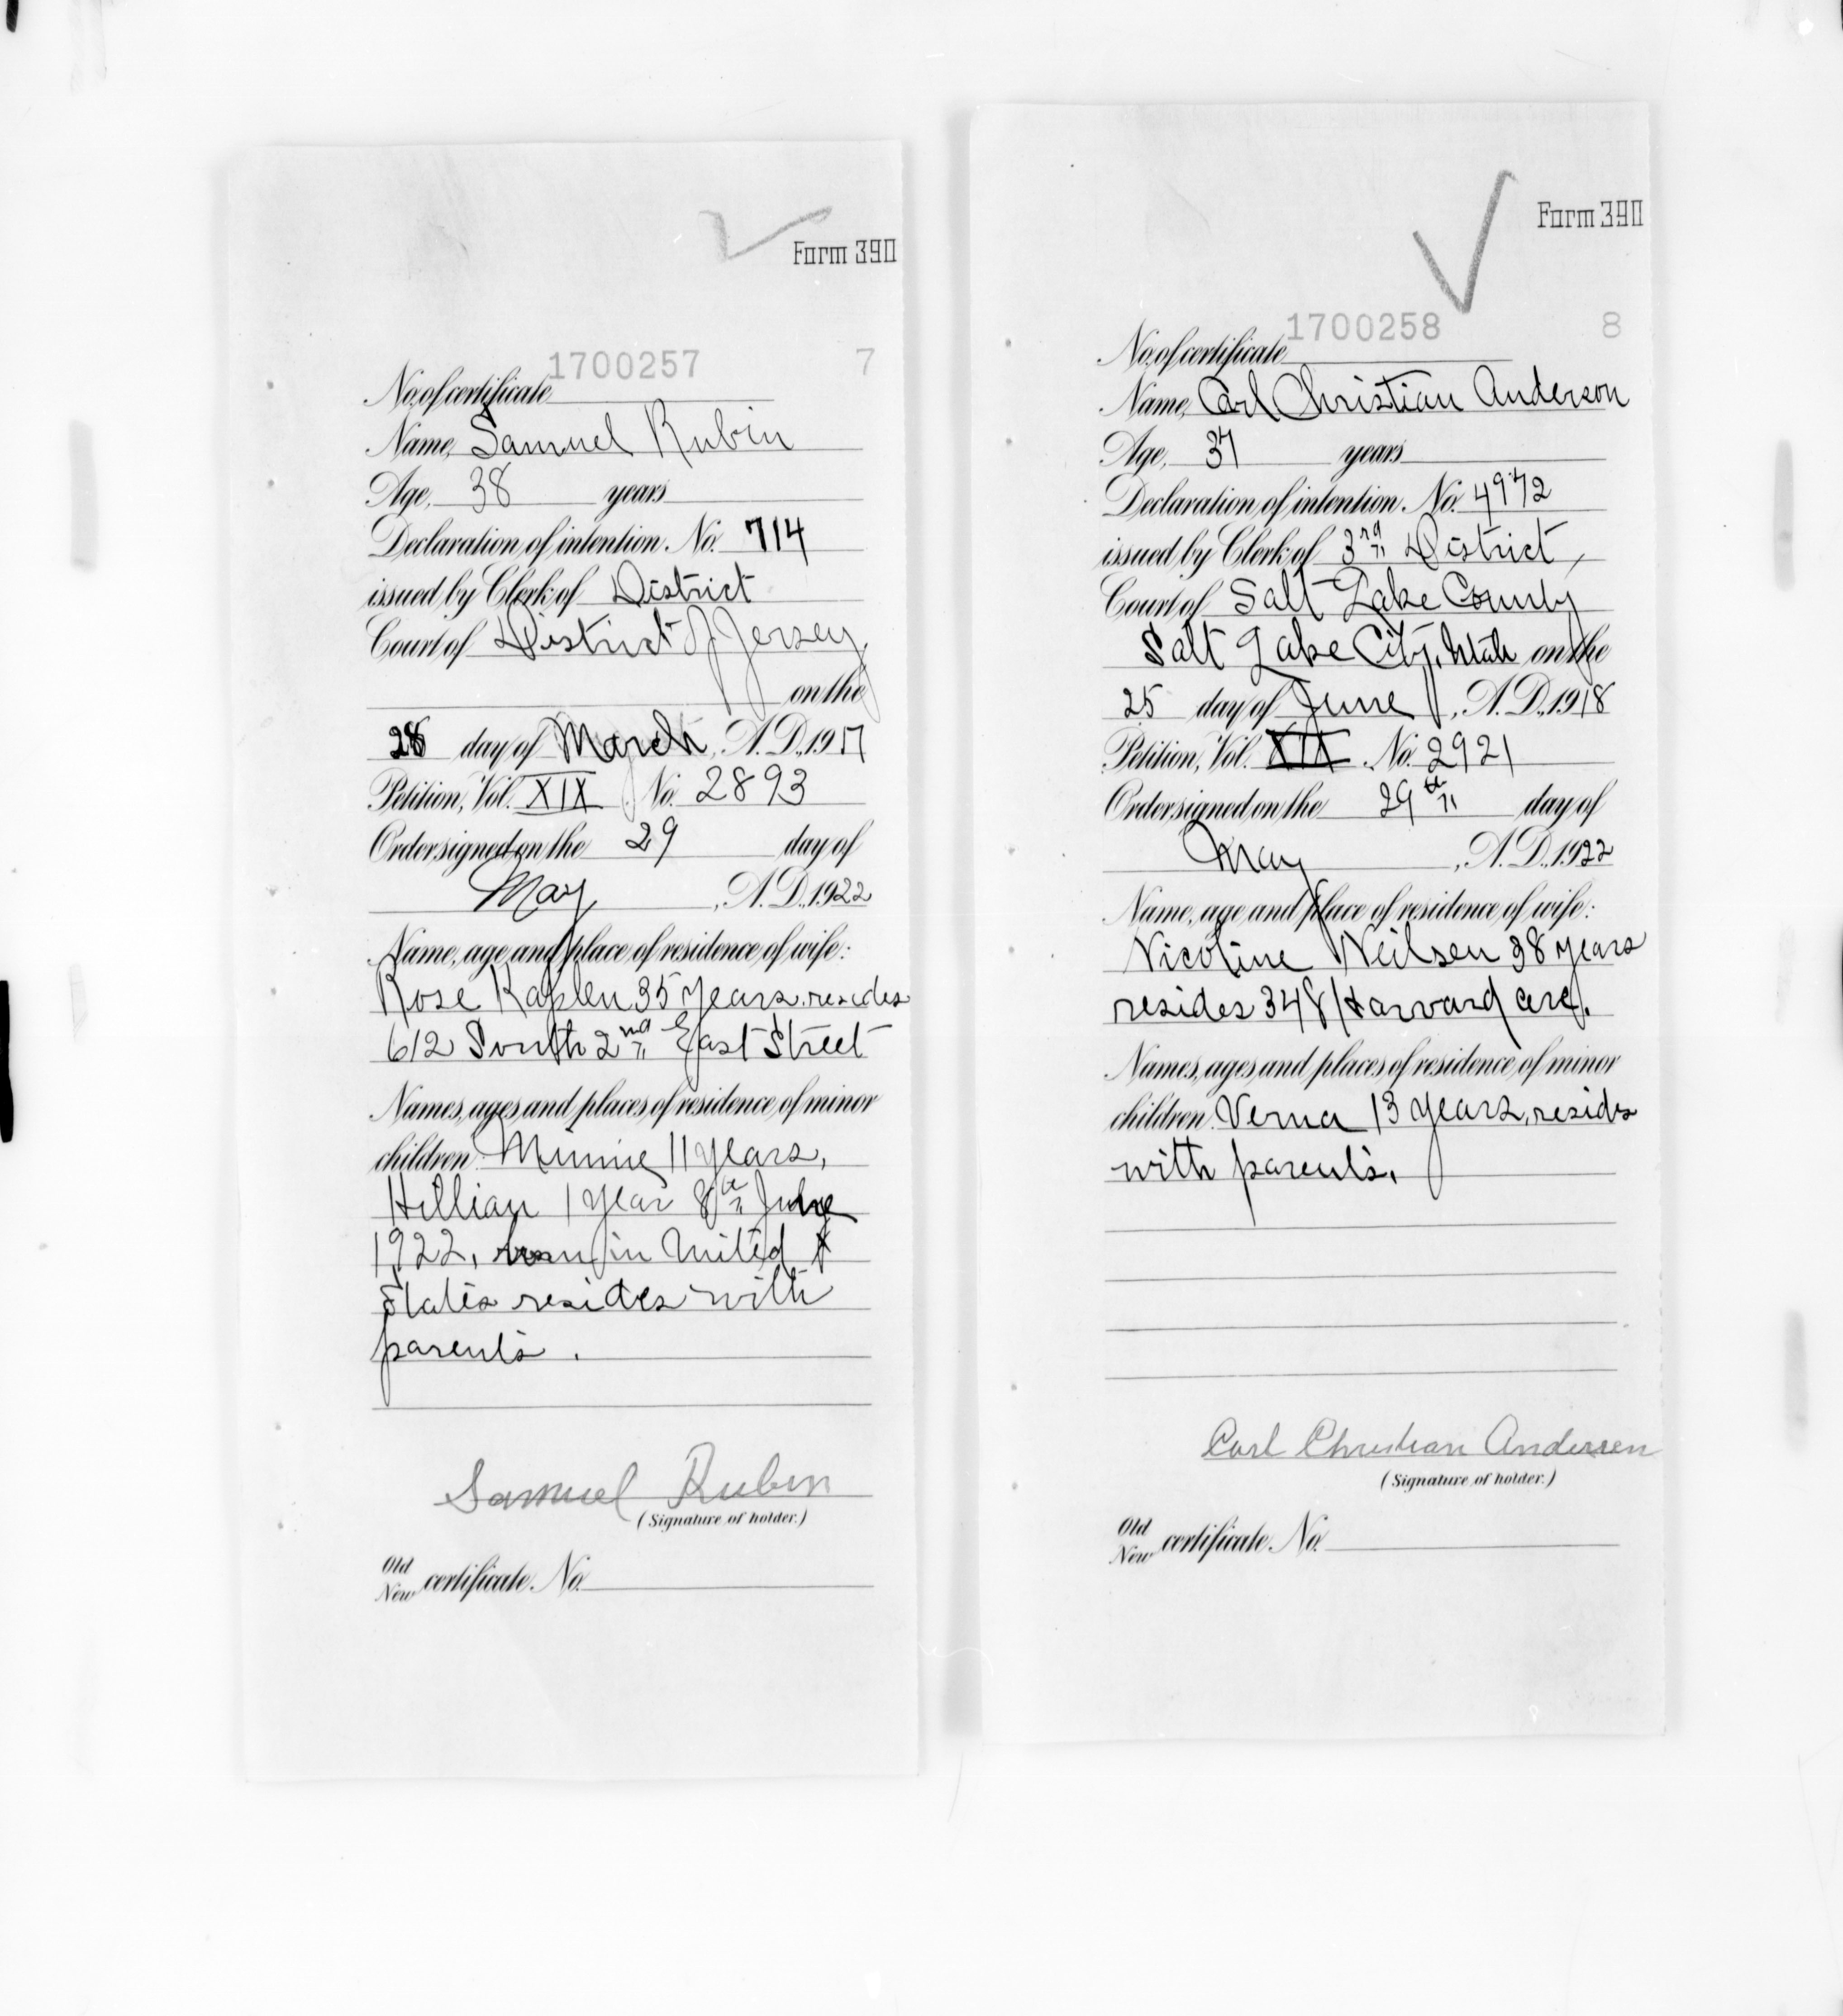 Form 390
1700257 7
No. of certificate
Name, Samuel Rubin
Age, 38 years
Declaration of intention. No. 714
issued by Clerk of District
Court of District of Jersey,
on the
28 day of March, A. D., 1917
Petition, Vol. XIX No. 2893
Order signed on the 29 day of
May, A. D., 1922
Name, age and place of residence of wife:
Rose Kaplen 35 years. resides
612 South 2nd East Street
Names, ages and places of residence of minor
children: Minnie 11 years,
1 year 8th June
1922, born in United
States resides with
parents.
Samuel Rubin
(Signature of holder.)
Old
New certificate. No.
Form 390
1700258 8
No. of certificate
Name, Carl Christian Anderson
Age, 37 years
Declaration of intention. No. 4972
issued by Clerk of 3rd District,
Court of Salt Lake County
Salt Lake City, Utah on the
25 day of June, A. D., 1918
Petition, Vol. XIX No. 2921
Order signed on the 29th day of
May, A. D., 1922
Name, age and place of residence of wife:
Nicoline Neilsen 38 years
resides 348 Harvard ave.
Names, ages and places of residence of minor
children. Verna 13 years, resides
with parents.
Carl Christian Andersen
(Signature of holder.)
Old
New certificate No.